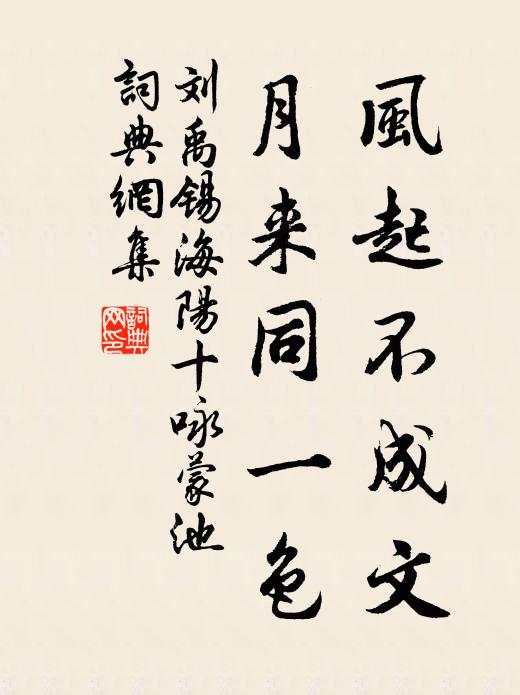 風起不成文
月来同一色
刘禹锡海陽十咏蒙池
詞典網集
詞典网印